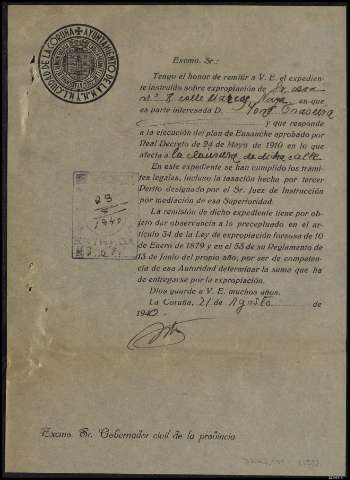 AYUNTAMIENTO DE LA M.N. Y M.L. CIUDAD DE LA CORUÑA
Excmo. Sr.:
Tengo el honor de remitir a V. E. el expediente
instruído sobre expropiación de la casa
nº 8 calle Marcos Naya en que
es parte interesada D. José
y que responde
a la ejecución del plan de Ensanche aprobado por
Real Decreto de 24 de Mayo de 1910 en lo que
afecta a la clausura de dicha calle
En este expediente se han cumplido los trámi-
tes legales, incluso la tasación hecha por tercer
Perito designado por el Sr. Juez de Instrucción
por mediación de esa Superioridad.
La remisión de dicho expediente tiene por ob-
jero dar observancia a lo preceptuado en el
artículo 34 de la Ley de expropiación forzosa de 10
de Enero de 1879 y en el 53 de su Reglamento de
13 de Junio del propio año, por ser de competen-
cia de esa Autoridad determinar la suma que ha
de entregarse por la expropiación.
Dios guarde a V. E. muchos años.
La Coruña, 21 de Agosto de
1940.
Excmo. Sr. Gobernador civil de la provincia